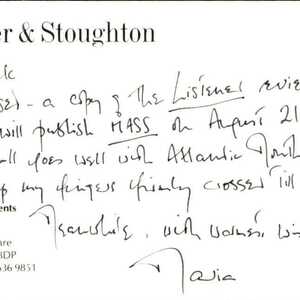 er & Stoughton
- a copy of the Listener revie
will publish MASS on August 21
all goes well with Atlantic Month
my fingers firmly crossed till
ents
Meanwhile, with warmest wi
are
BDP
636 9851
Maria